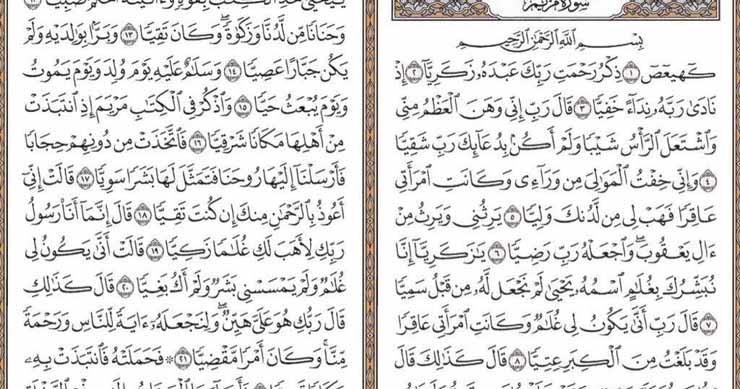 سورة مريم
بِسْمِ اللَّهِ الرَّحْمَٰنِ الرَّحِيمِ
كٓهيعٓصٓ ١ ذِكْرُ رَحْمَتِ رَبِّكَ عَبْدَهُۥ زَكَرِيَّآ ٢ إِذْ
نَادَىٰ رَبَّهُۥ نِدَآءً خَفِيًّا ٣ قَالَ رَبِّ إِنِّى وَهَنَ ٱلْعَظْمُ مِنِّى
وَٱشْتَعَلَ ٱلرَّأْسُ شَيْبًا وَلَمْ أَكُنۢ بِدُعَآئِكَ رَبِّ شَقِيًّا
٤ وَإِنِّى خِفْتُ ٱلْمَوَٰلِىَ مِن وَرَآءِى وَكَانَتِ ٱمْرَأَتِى
عَاقِرًا فَهَبْ لِى مِن لَّدُنكَ وَلِيًّا ٥ يَرِثُنِى وَيَرِثُ مِنْ
ءَالِ يَعْقُوبَ ۖ وَٱجْعَلْهُ رَبِّ رَضِيًّا ٦ يَٰزَكَرِيَّآ إِنَّا
نُبَشِّرُكَ بِغُلَٰمٍ ٱسْمُهُۥ يَحْيَىٰ لَمْ نَجْعَل لَّهُۥ مِن قَبْلُ سَمِيًّا
٧ قَالَ رَبِّ أَنَّىٰ يَكُونُ لِى غُلَٰمٌ وَكَانَتِ ٱمْرَأَتِى عَاقِرًا
وَقَدْ بَلَغْتُ مِنَ ٱلْكِبَرِ عِتِيًّا ٨ قَالَ كَذَٰلِكَ قَالَ
وَحَنَانًا مِّن لَّدُنَّا وَزَكَوٰةً ۖ وَكَانَ تَقِيًّا ١٣ وَبَرًّۢا بِوَٰلِدَيْهِ وَلَمْ
يَكُن جَبَّارًا عَصِيًّا ١٤ وَسَلَٰمٌ عَلَيْهِ يَوْمَ وُلِدَ وَيَوْمَ يَمُوتُ
وَيَوْمَ يُبْعَثُ حَيًّا ١٥ وَٱذْكُرْ فِى ٱلْكِتَٰبِ مَرْيَمَ إِذِ ٱنتَبَذَتْ
مِنْ أَهْلِهَا مَكَانًا شَرْقِيًّا ١٦ فَٱتَّخَذَتْ مِن دُونِهِمْ حِجَابًا
فَأَرْسَلْنَآ إِلَيْهَا رُوحَنَا فَتَمَثَّلَ لَهَا بَشَرًا سَوِيًّا ١٧ قَالَتْ إِنِّىٓ
أَعُوذُ بِٱلرَّحْمَٰنِ مِنكَ إِن كُنتَ تَقِيًّا ١٨ قَالَ إِنَّمَآ أَنَا۠ رَسُولُ
رَبِّكِ لِأَهَبَ لَكِ غُلَٰمًا زَكِيًّا ١٩ قَالَتْ أَنَّىٰ يَكُونُ لِى
غُلَٰمٌ وَلَمْ يَمْسَسْنِى بَشَرٌ وَلَمْ أَكُ بَغِيًّا ٢٠ قَالَ كَذَٰلِكِ
قَالَ رَبُّكِ هُوَ عَلَىَّ هَيِّنٌ ۖ وَلِنَجْعَلَهُۥٓ ءَايَةً لِّلنَّاسِ وَرَحْمَةً
مِّنَّا ۚ وَكَانَ أَمْرًا مَّقْضِيًّا ٢١ ۞ فَحَمَلَتْهُ فَٱنتَبَذَتْ بِهِۦ